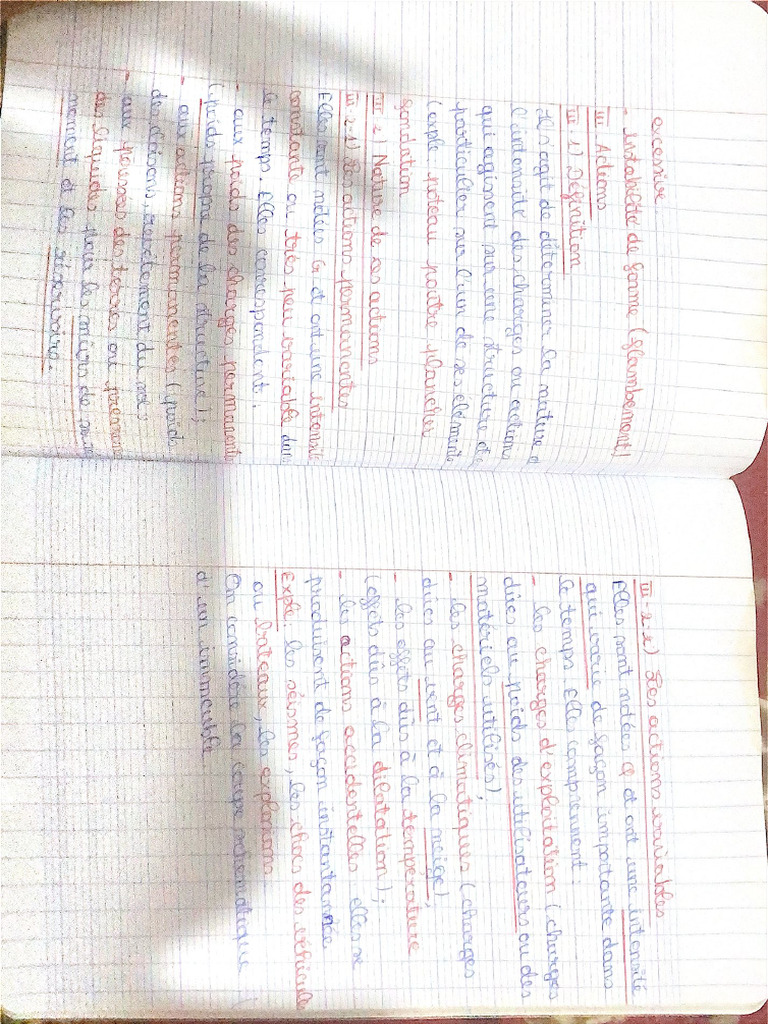 excessive
- Instabilité de forme (flambement)
III Actions
III.1) Définition
Il s'agit de déterminer la nature e
l'intensité des charges ou actions
qui agissent sur une structure de
particulier sur l'un de ses éléments
(exple poteau poutre plancher
fondation
III 2) Nature de ces actions
III-2-1) Les actions permanentes
Elles sont notées G et ont une intensité
constante ou très peu variable dans
le temps. Elles correspondent :
- aux poids des charges permanent
(poids propre de la structure) ;
- aux actions permanentes (poids
des cloisons, revêtement du sol
- aux poussées des terres ou pression
des liquides pour les murs de
nement et les réservoirs.
III-2-2) Les actions variables
Elles sont notées Q et ont une intensité
qui varie de façon importante dans
le temps Elles comprennent :
- les charges d'exploitation (charges
dûes au poids des utilisateurs ou des
matériels utilisés) ;
- les charges climatiques (charges
dûes au vent et à la neige) ;
- les effets dûs à la température
(effets dûs à la dilatation) ;
- les actions accidentelles elles se
produisent de façon instantanée
Exple : les séismes, les chocs des véhicule
ou bateaux, les explosions
On considère la coupe schématique
d'un immeuble